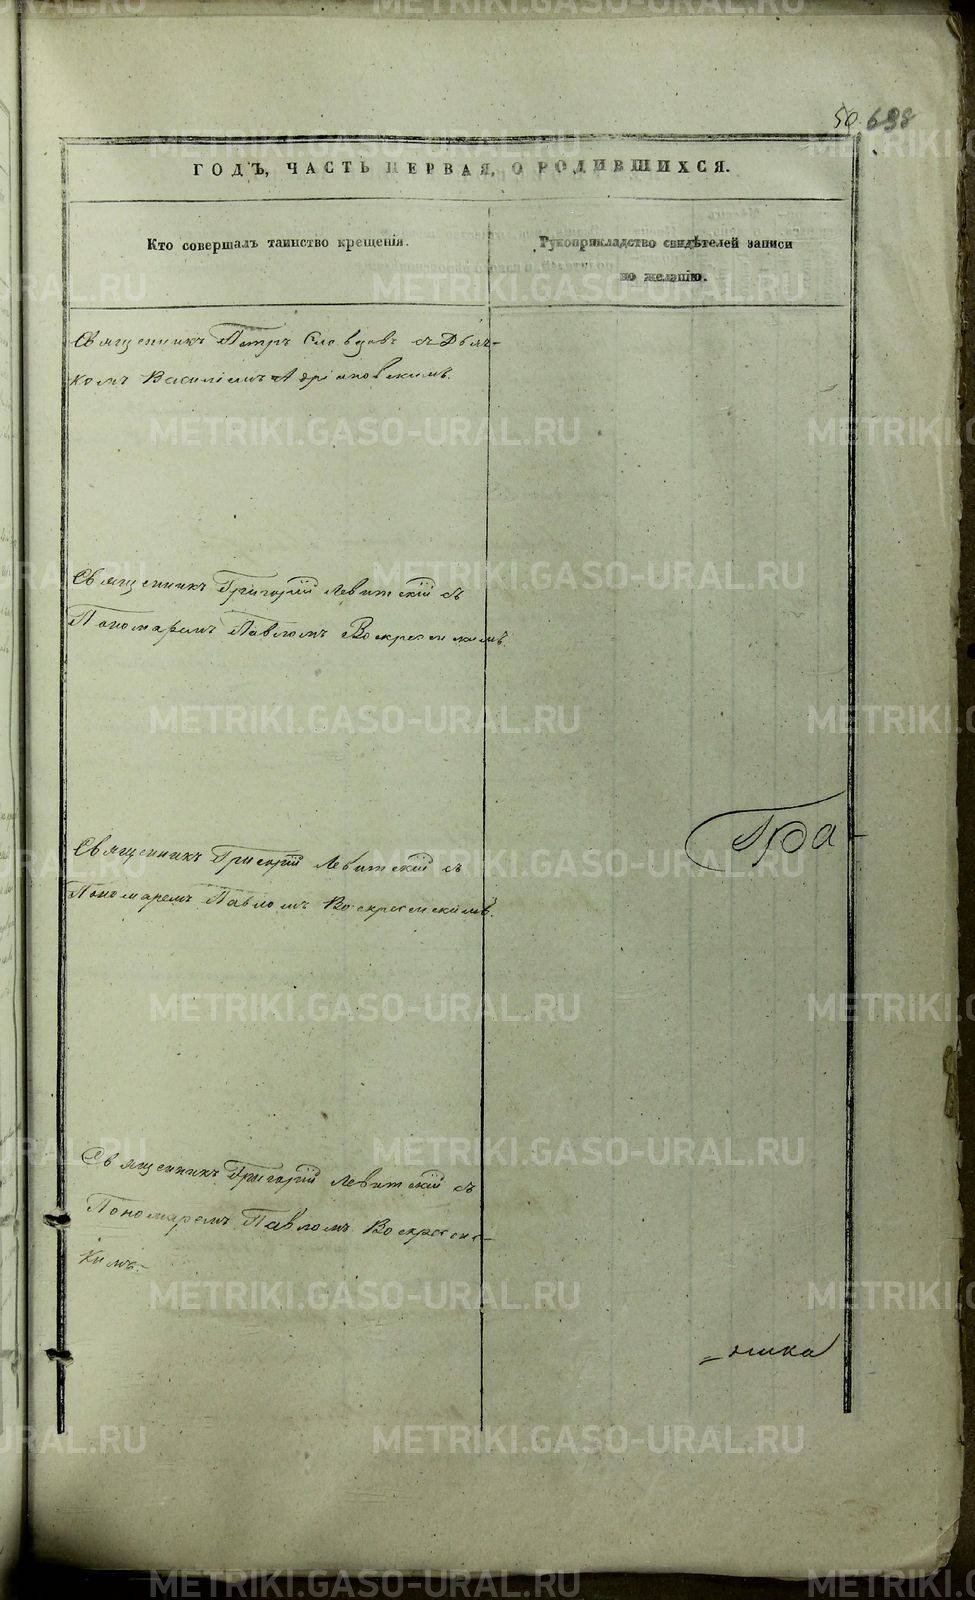 50. 698
ГОДЪ, ЧАСТЬ ПЕРВАЯ, О РОДИВШИХСЯ.
Кто совершалъ таинство крещенія.
Рукоприкладство свидѣтелей записи
по желанію.
Священникъ Петръ Словцовъ съ Дьяч-
комъ Василіемъ Адріановскимъ.
Священникъ Григорій Левитскій съ
Пономаремъ Павломъ Воскресенскимъ
Священникъ Григорій Левитскій съ
Пономаремъ Павломъ Воскресенскимъ.
Священникъ Григорій Левитскій съ
Пономаремъ Павломъ Воскресенс-
кимъ.
METRIKI.GASO-URAL.RU